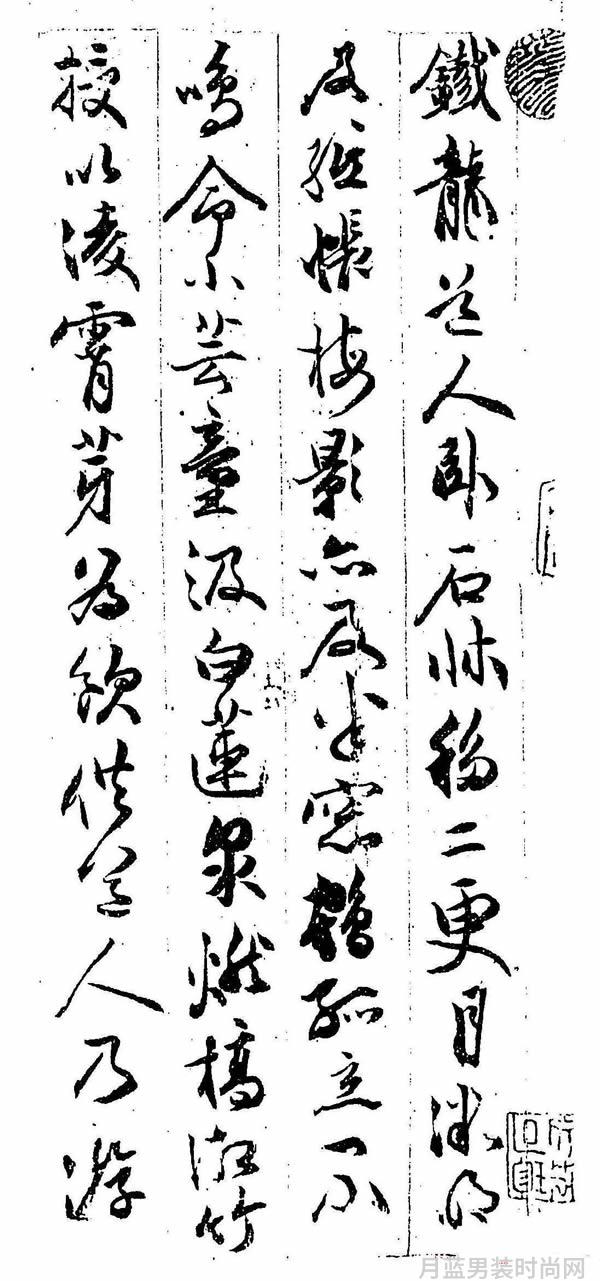 鐵龍道人臥石牀移二更月微明
及紙帳梅影亦及半窓鶴孤立不
鳴命小芸童汲白蓮泉燃槁湘竹
授以凌霄芽為飲供道人乃游
月蓝男装时尚网